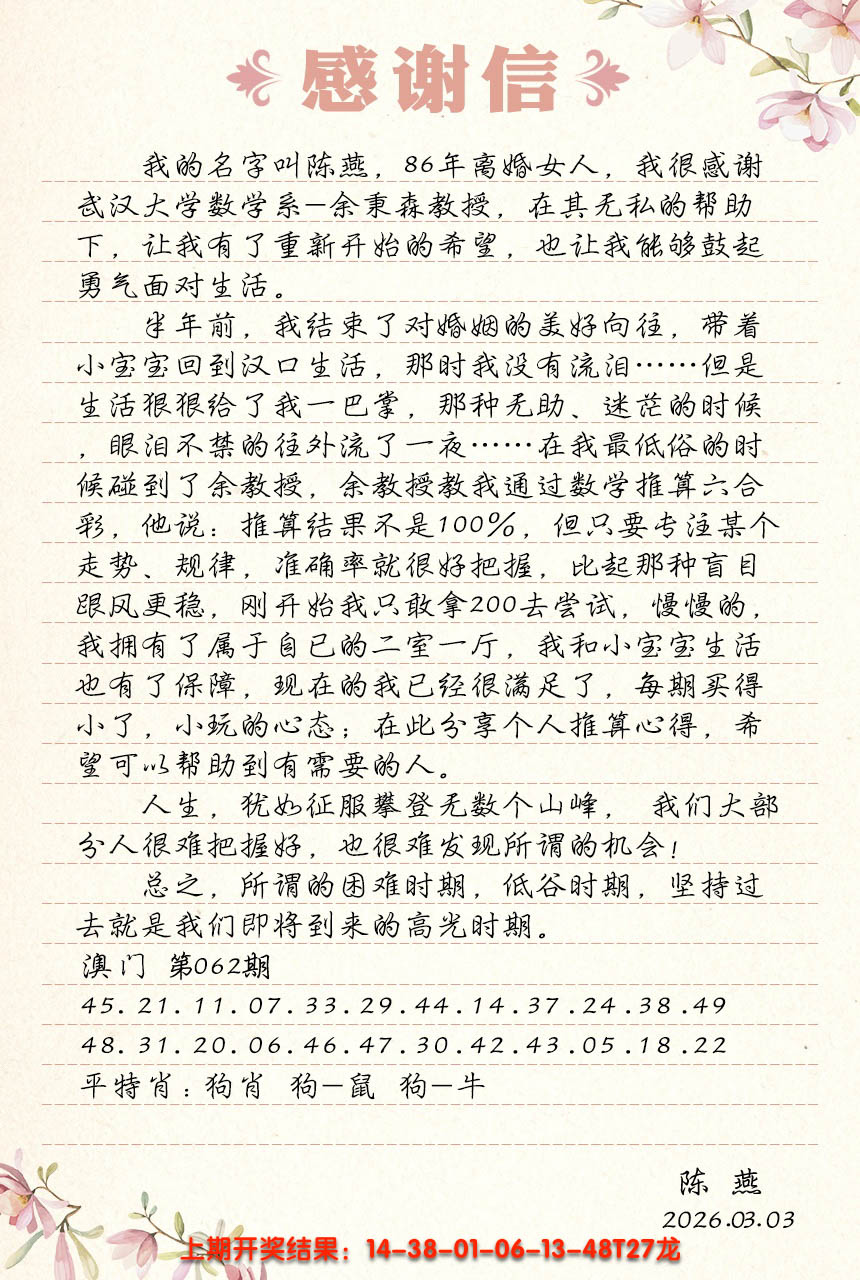 感谢信
我的名字叫陈燕，86年离婚女人，我很感谢
武汉大学数学系—余秉森教授，在其无私的帮助
下，让我有了重新开始的希望，也让我能够鼓起
勇气面对生活。
半年前，我结束了对婚姻的美好向往，带着
小宝宝回到汉口生活，那时我没有流泪……但是
生活狠狠给了我一巴掌，那种无助、迷茫的时候
，眼泪不禁的往外流了一夜……在我最低俗的时
候碰到了余教授，余教授教我通过数学推算六合
彩，他说：推算结果不是100%，但只要专注某个
走势、规律，准确率就很好把握，比起那种盲目
跟风更稳，刚开始我只敢拿200去尝试，慢慢的，
我拥有了属于自已的二室一厅，我和小宝宝生活
也有了保障，现在的我已经很满足了，每期买得
小了，小玩的心态；在此分享个人推算心得，希
望可以帮助到有需要的人。
人生，犹如征服攀登无数个山峰， 我们大部
分人很难把握好，也很难发现所谓的机会！
总之，所谓的困难时期，低谷时期，坚持过
去就是我们即将到来的高光时期。
澳门 第062期
45.21.11.07.33.29.44.14.37.24.38.49
48.31.20.06.46.47.30.42.43.05.18.22
平特肖：狗肖 狗—鼠 狗—牛
陈 燕
2026.03.03
上期开奖结果：14-38-01-06-13-48T27龙